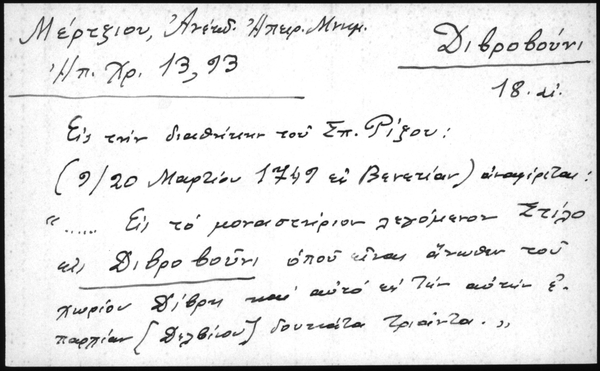 Μέρτζιου, Ἀνέκδ. Ἠπειρ. Μνημ.
Ἠπ. Χρ. 13, 93
Διβροβούνι
18. αἰ.
Εἰς τὴν διαθήκην τοῦ Σπ. Ρίζου:
(9/20 Μαρτίου 1749 ἐν Βενετίᾳ) ἀναφέρεται:
"..... Εἰς τὸ μοναστήριον λεγόμενον Στύλο
εἰς Διβροβοῦνι ὁποῦ εἶναι ἄνωθεν τοῦ
χωρίου Δίβρη καὶ αὐτὸ εἰς τὴν αὐτὴν ἐ-
παρχίαν [Δελβίνου] δουκάτα τριάντα. „